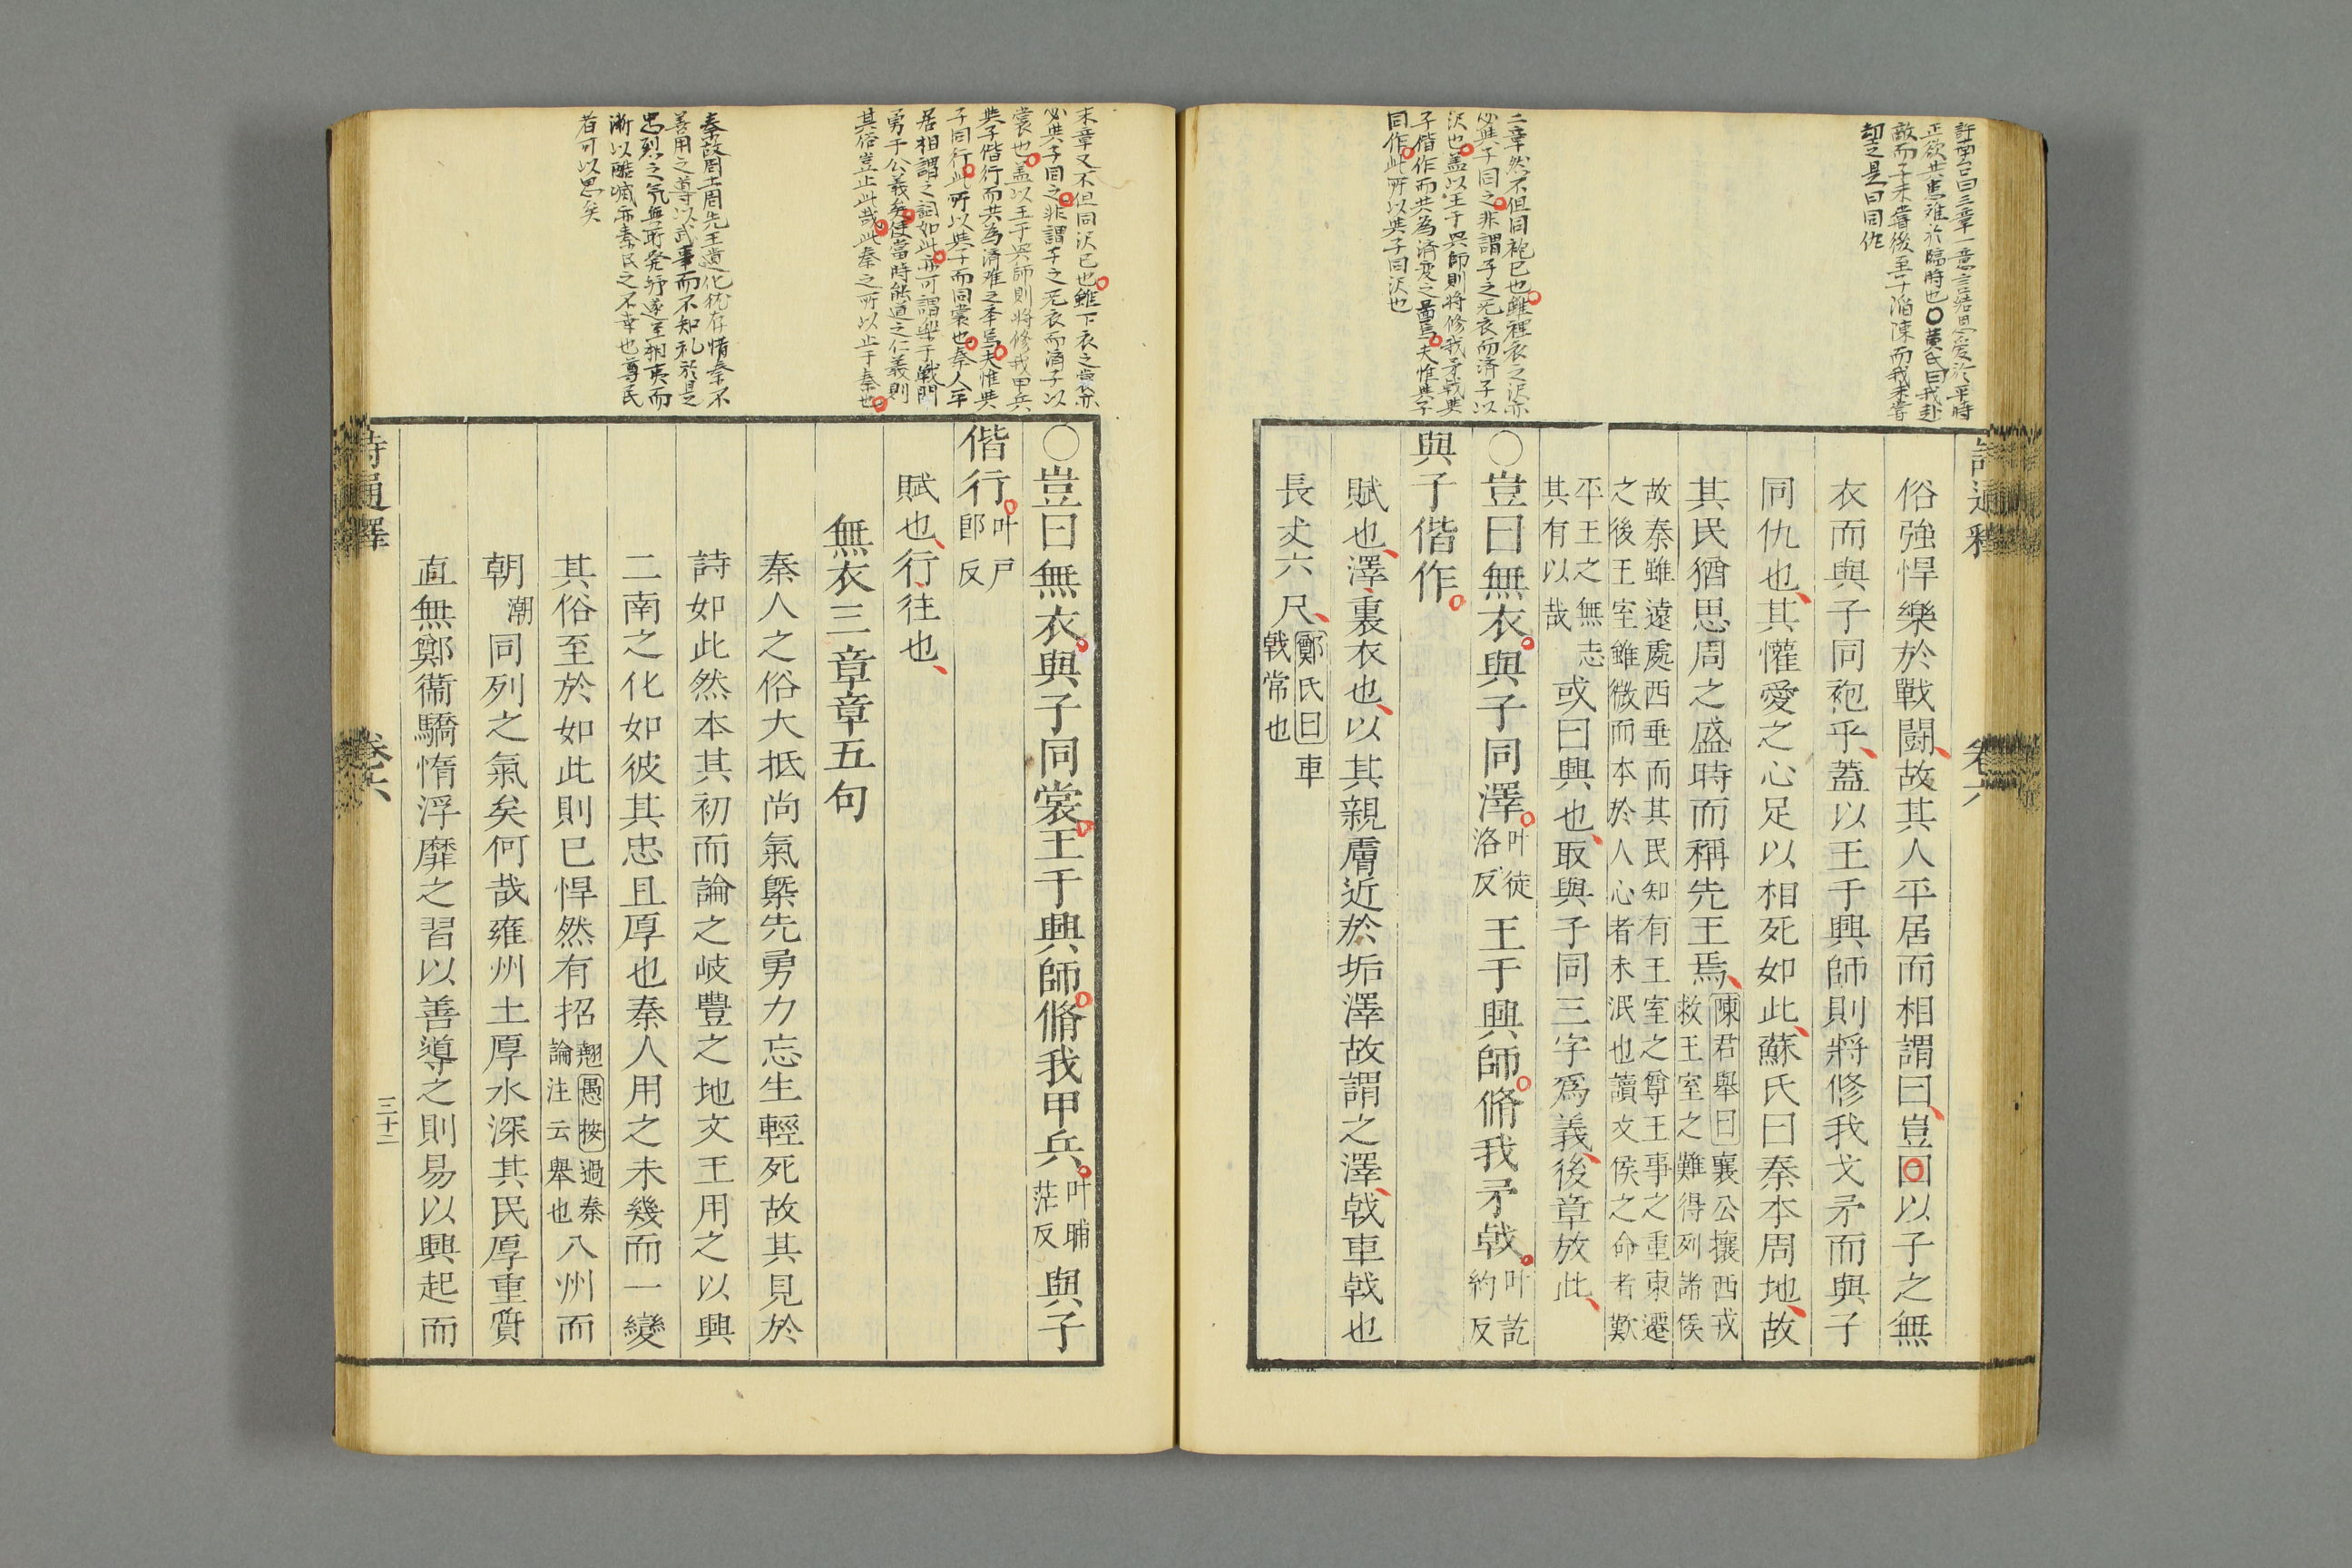 俗強悍樂於戰鬪故其人平居而相謂曰豈曰以子之無
衣而與子同袍乎蓋以王于興師則將修我戈矛而與子
同仇也其懽愛之心足以相死如此蘇氏曰秦本周地故
其民猶思周之盛時而稱先王焉陳君舉曰襄公攘西戎
救王室之難得列諸侯
故秦雖遠處西垂而其民知有王室之尊王事之重東遷
之後王室雖微而本於人心者未泯也讀文侯之命者歎
平王之無志
其有以哉
或曰興也取與子同三字爲義後章放此
○豈曰無衣與子同澤叶徒
洛反
王于興師脩我矛戟叶訖
約反
與子偕作
賦也澤裏衣也以其親膚近於垢澤故謂之澤戟車戟也
長丈六尺鄭氏曰車
戟常也
二章然不但同袍已也雖裡衣之沢亦
必與子同之非謂子之无衣而済子以
沢也盖以王于興師則將修我矛戟與
子偕作而共為済変之啚焉夫惟與子
同作此所以與子同沢也
○豈曰無衣與子同裳王于興師脩我甲兵叶晡
茫反
與子
偕行叶戸
郎反
賦也行往也
無衣三章章五句
秦人之俗大抵尚氣槩先勇力忘生輕死故其見於
詩如此然本其初而論之岐豐之地文王用之以興
二南之化如彼其忠且厚也秦人用之未幾而一變
其俗至於如此則已悍然有招翹愚按過秦
論注云舉也
八州而
朝潮同列之氣矣何哉雍州土厚水深其民厚重質
直無鄭衞驕惰浮靡之習以善導之則易以興起而
末章又不但同沢已也雖下衣之裳亦
必與子同之非謂子之无衣而済子以
裳也盖以王于興師則将修我甲兵
與子偕行而共為済难之挙焉夫惟與
子同行此所以與子而同裳也秦人平
居相謂之詞如此亦可謂樂于戰鬥
勇于公義矣使當時能道之仁義則
其俗豈止此哉此秦之所以止于秦也
秦故周土周先王遺化犹存惜秦不
善用之尊以武事而不知礼於是
忠烈之気無所発
漸以酷烕亦秦民之不幸也尊民
者可以思矣
詩通釋
卷六
三十二